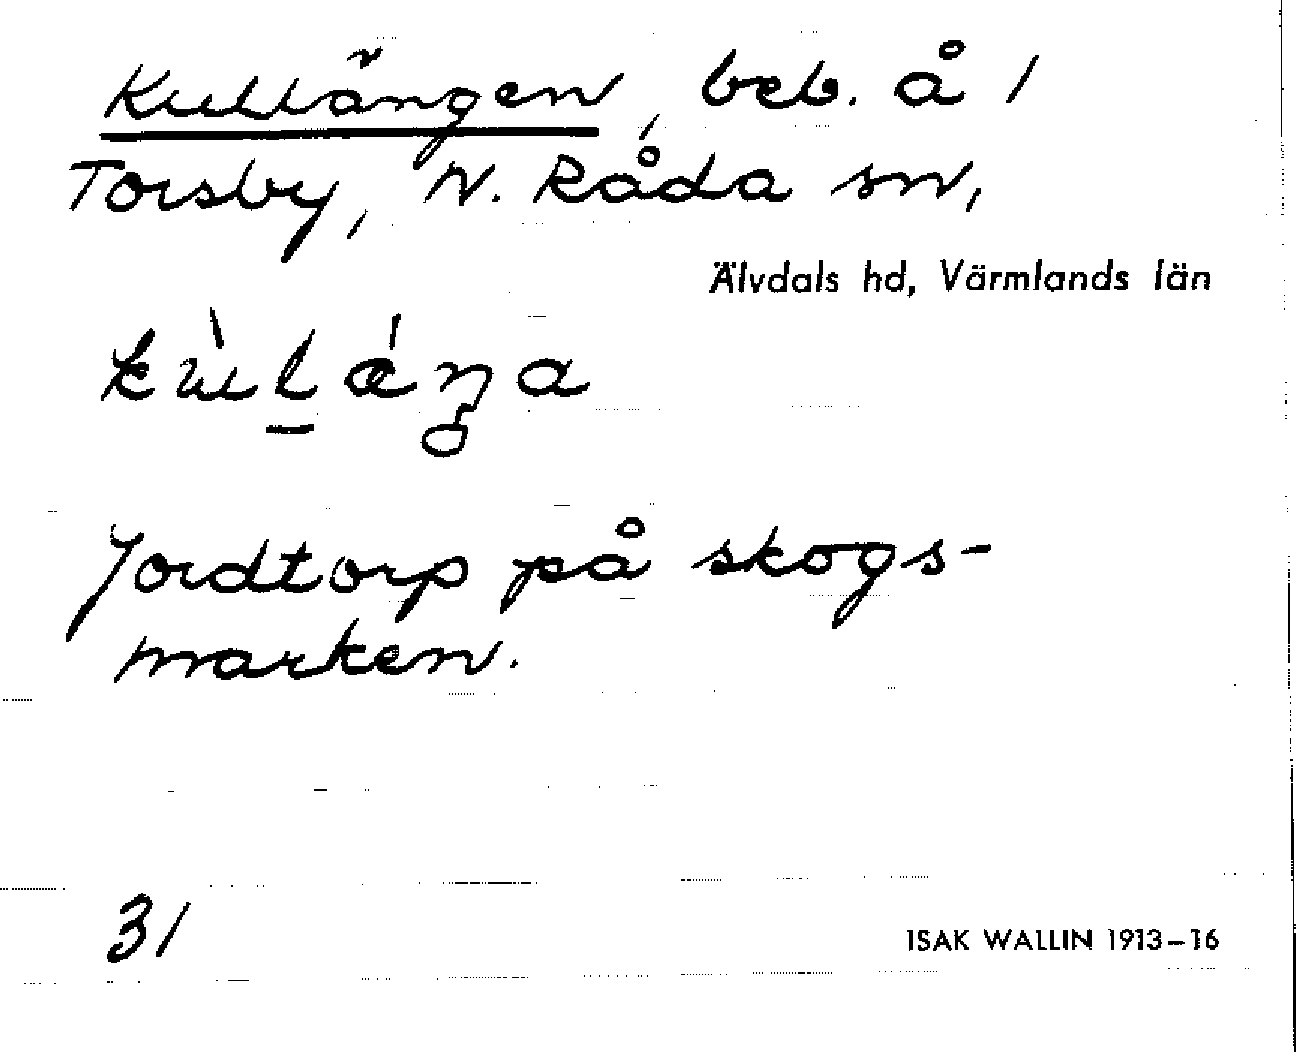 Kullängen, beb. å 1
Torsby, N. Råda sn,
Älvdals hd, Värmlands län
kùḻǽŋa
Jordtorp på skogs-
marken.
31
ISAK WALLIN 1913–16